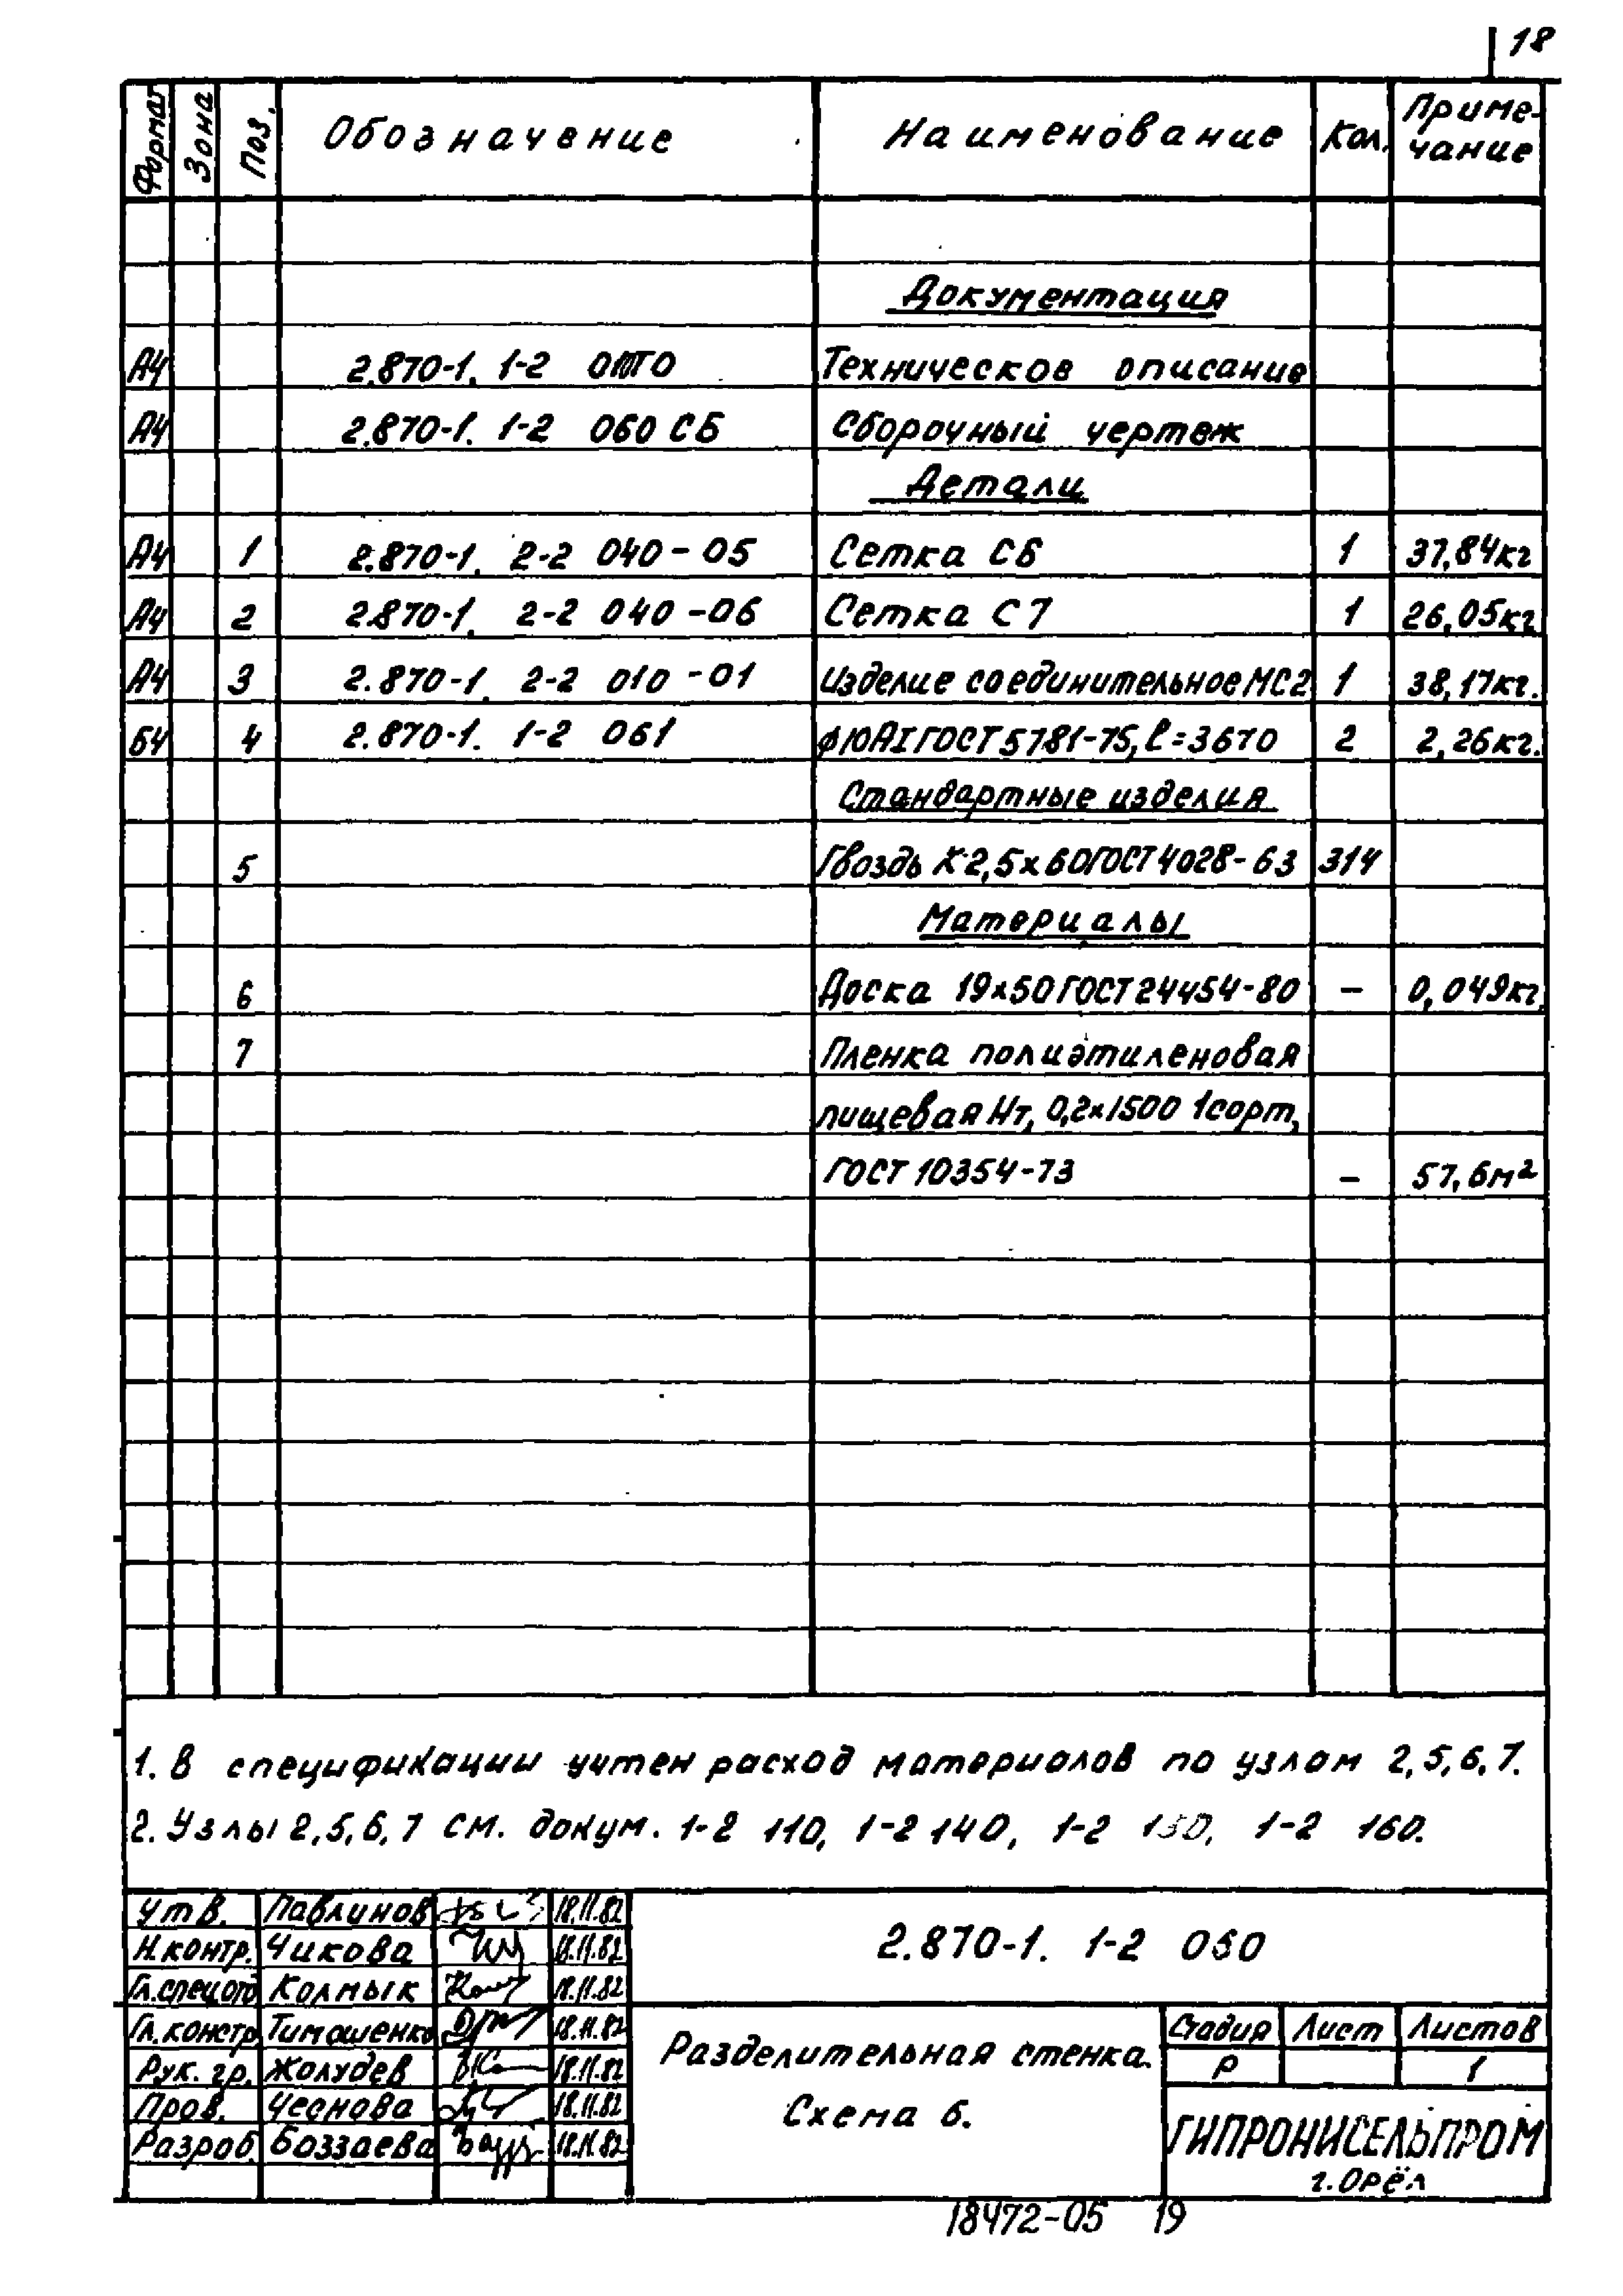 18
Формат Зона Поз. Обозначение Наименование Кол. Приме-
чание
Документация
А4 2.870-1. 1-2 000ТО Техническое описание
А4 2.870-1. 1-2 060 СБ Сборочный чертеж
Детали
А4 1 2.870-1. 2-2 040-05 Сетка С6 1 37,84кг
А4 2 2.870-1. 2-2 040-06 Сетка С7 1 26,05кг
А4 3 2.870-1. 2-2 010-01 Изделие соединительное МС2 1 38,17кг.
БЧ 4 2.870-1. 1-2 061 ф10АI ГОСТ 5781-75, l=3670 2 2,26кг.
Стандартные изделия
5 Гвоздь К2,5х60 ГОСТ 4028-63 314
Материалы
6 Доска 19х50 ГОСТ 24454-80 - 0,049кг.
7 Пленка полиэтиленовая
пищевая Нт, 0,2х1500 1сорт,
ГОСТ 10354-73 - 57,6м²
1. В спецификации учтен расход материалов по узлам 2,5,6,7.
2. Узлы 2,5,6,7 см. докум. 1-2 110, 1-2 140, 1-2 150, 1-2 160.
Утв. Павлинов 18.11.82
Н.контр. Чикова 18.11.82
Гл.спецотд Колмык 18.11.82
Гл.констр. Тимошенко 18.11.82
Рук. гр. Жолудев 18.11.82
Пров. Чеснова 18.11.82
Разраб. Боззаева 18.11.82
2.870-1. 1-2 060
Разделительная стенка.
Схема 6.
Стадия Лист Листов
Р 1
ГИПРОНИСЕЛЬПРОМ
г.Орёл
18472-05 19